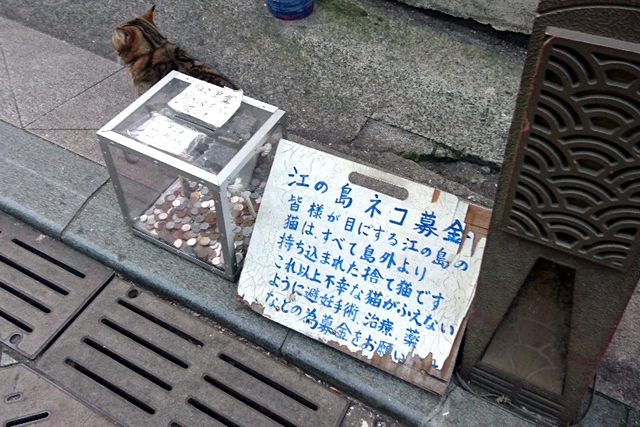 江の島ネコ募金
皆様が目にする江の島の
猫はすべて島外より
持ち込まれた捨て猫です
これ以上不幸な猫がふえない
ように避妊手術、治療、薬
などの為募金をお願い